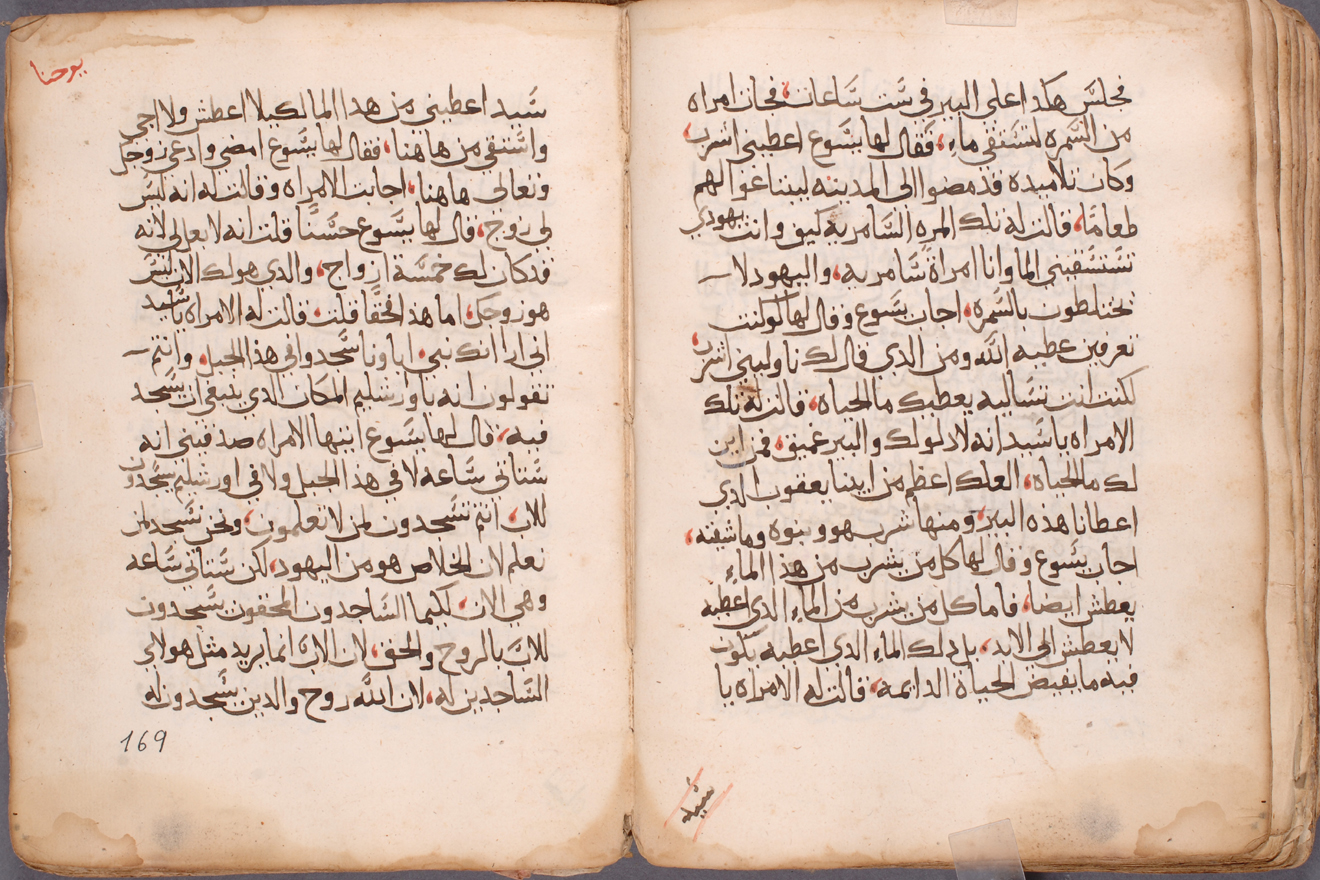 فجلس هكدا على البير في ست ساعات، فجات امراه
من السمره لتستقي ماء، فقال لها يسوع اعطيني اشرب،
وكان تلاميده قد مضوا الى المدينه ليبتاعوا لهم
طعاما، قالت له تلك المره السامريه كيف وانت يهودي
تستسقيني الما وانا امراة سامريه، واليهود لا
تختلطون بالسمره، اجاب يسوع وقال لها لو كنت
تعرفين عطيه الله ومن الدي قال لك ناوليني اشرب،
لكنت انت تساليه يعطيك ما الحياه، قالت له تلك
الامراه يا سيد انه لا دلو لك والبير عميق، فمن اين
لك ما الحياه، العلك اعظم من ابينا يعقوب الدي
اعطانا هذه البير، ومنها شرب هو وبنوه وماشيته،
اجاب يسوع وقال لها كل من يشرب من هذا الماء
يعطش ايضا، فاما كل من يشرب من الماء الدي اعطيه
لا يعطش الى الابد، بل دلك الماء الدي اعطيه يكون
فيه ما يفيض لحياة الدايمه، قالت له الامراه يا
سيد
يوحنا
سيد اعطيني من هدا الما لكيلا اعطش ولا اجي
واستقي من هاهنا، فقال لها يسوع امضي وادعي زوجك
وتعالى هاهنا، اجابت الامراه وقالت له انه ليس
لي زوج، قال لها يسوع حسنا قلت انه لا بعل لي لانه
قد كان لك خمسة ازواج، والدي هو لك الان ليس
هو زوجك، اما هذا فحقا قلت، قالت له الامراه يا سيد
اني ارا انك نبي، اباونا سجدوا في هذا الجبل، وانتم
تقولون انه باورشليم المكان الدي ينبغي ان يسجد
فيه، قال لها يسوع ايتها الامراه صدقيني انه
ستاتي ساعه لا في هذا الجبل ولا في اورشليم يسجدون
للاب، انتم تسجدون لمن لا تعلمون، ونحن نسجد لمن
نعلم لان الخلاص هو من اليهود، لكن ستاتي ساعه
وهي الان، لكيما الساجدون المحقون يسجدون
للاب بالروح والحق، لان الاب انما يريد مثل هولاي
الساجدين له، لان الله روح والدين يسجدون له
169